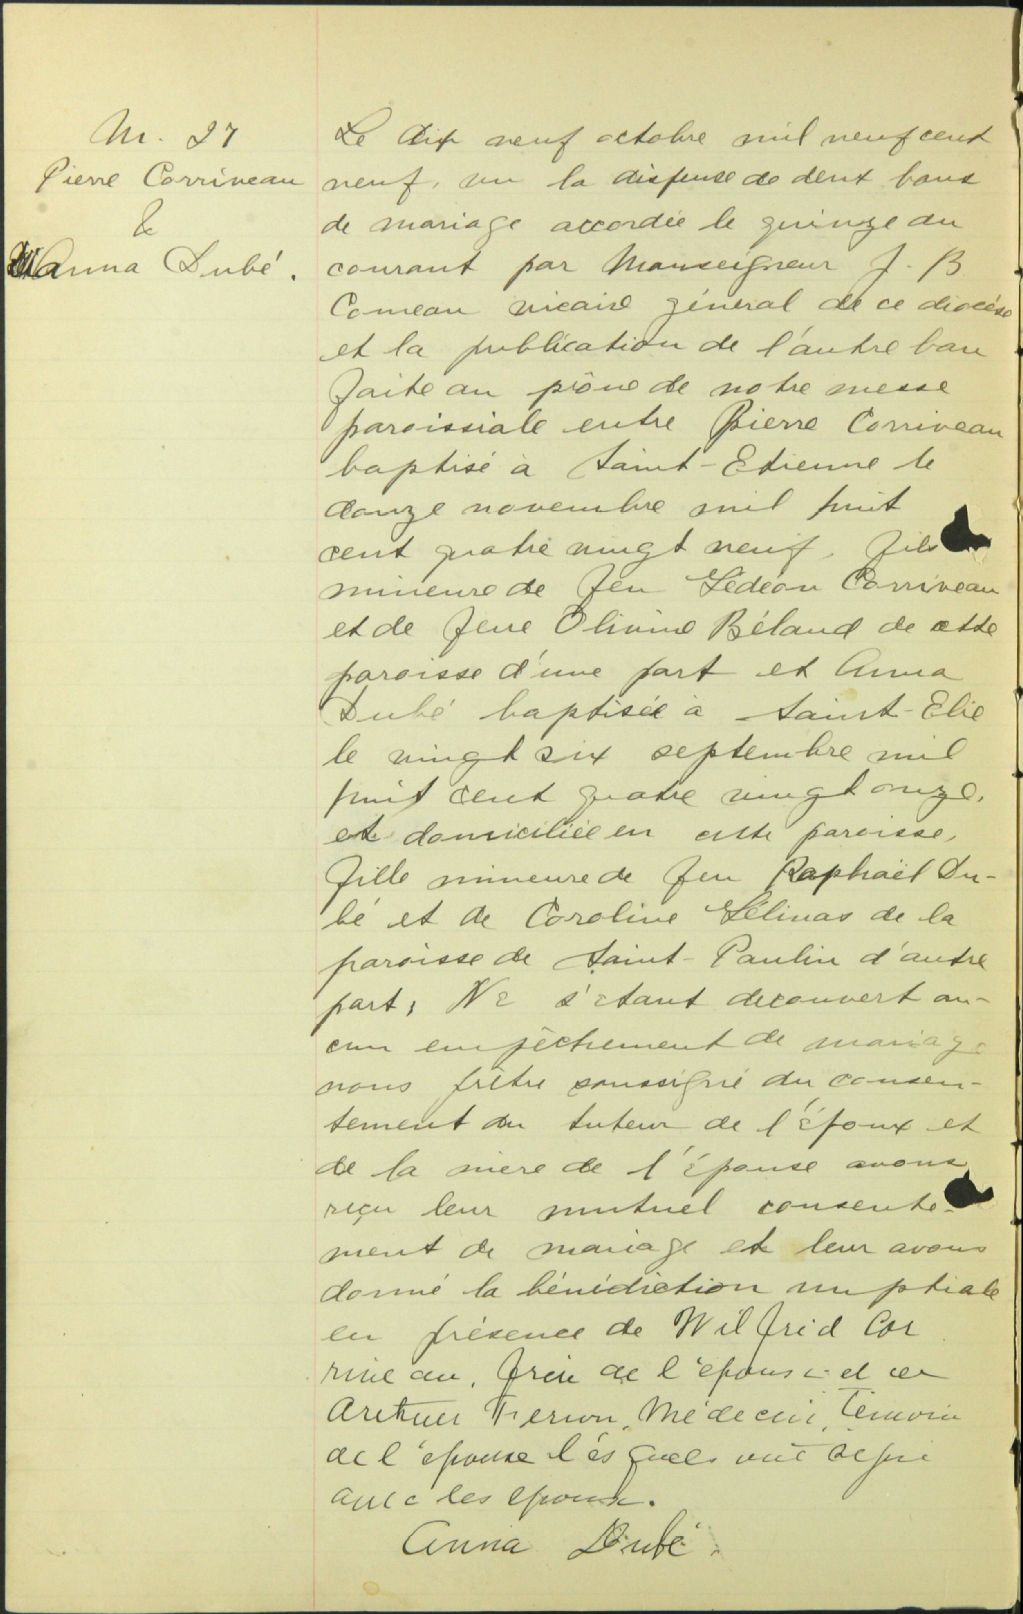 M. 27
Pierre Corriveau
&
Anna Dubé.
Le dix neuf octobre mil neuf cent
neuf, vu la dispense de deux bans
de mariage accordée le quinze du
courant par Monseigneur J. B
Comeau vicaire général de ce diocèse
et la publication de l'autre ban
faite au prône de notre messe
paroissiale entre Pierre Corriveau
baptisé à Saint-Etienne le
douze novembre mil huit
cent quatre vingt neuf, fils
mineure de feu Gédéon Corriveau
et de feue Olivine Béland de cette
paroisse d'une part et Anna
Dubé baptisée à Saint-Elie
le vingt six septembre mil
huit cent quatre vingt onze,
et domiciliée en cette paroisse,
fille mineure de feu Raphaël Du-
bé et de Caroline Gélinas de la
paroisse de Saint-Paulin d'autre
part, Ne s'étant decouvert au-
cun empêchement de mariage
nous prêtre soussigné du consen-
tement du tuteur de l'époux et
de la mère de l'épouse avons
reçu leur mutuel consente-
ment de mariage et leur avons
donné la bénédiction nuptiale
en présence de Wilfrid Cor
riveau, frère de l'époux et de
Arthur Ferron, Médecin, témoin
de l'épouse lesquels ont signé
avec les époux.
Anna Dubé.